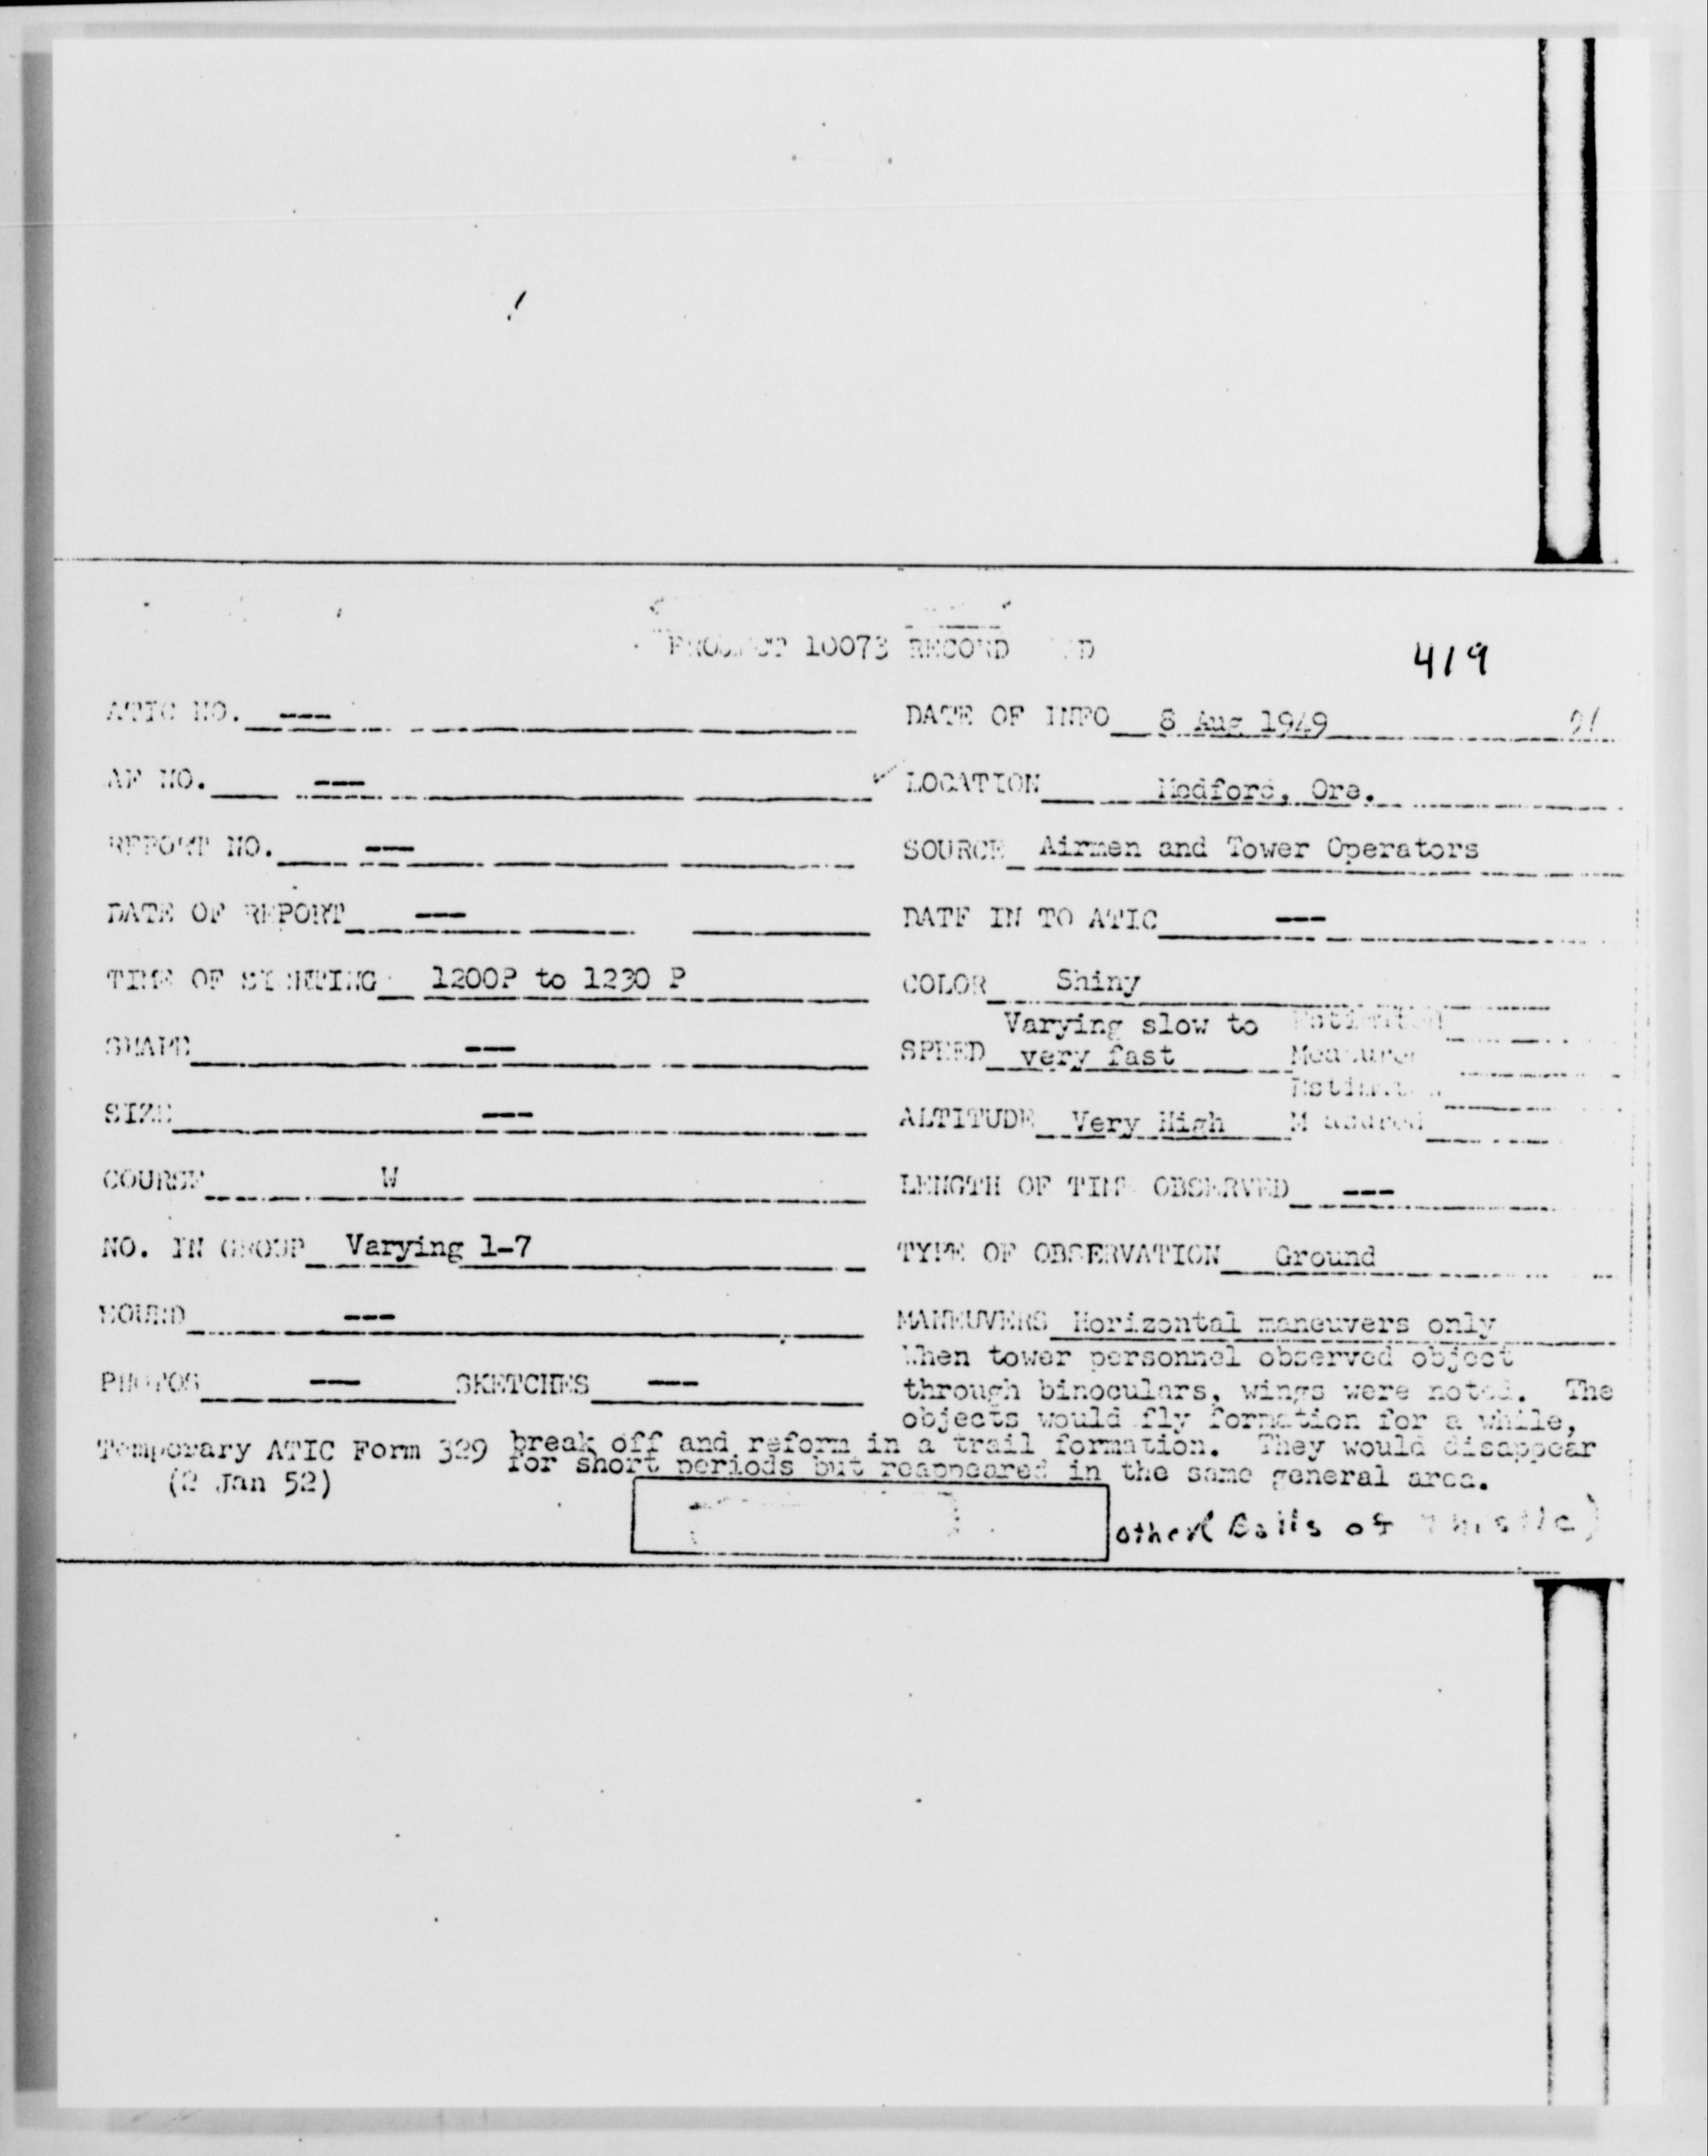 PROJECT 10073 RECORD
419
ATIC NO. ---
DATE OF INFO 8 Aug 1949
AF NO. ---
✓ LOCATION Medford, Ore.
REPORT NO. ---
SOURCE Airmen and Tower Operators
DATE OF REPORT ---
DATE IN TO ATIC ---
TIME OF SIGHTING 1200P to 1230 P
COLOR Shiny
SHAPE ---
Varying slow to Estimated
SPEED very fast Measured
SIZE ---
Estimated
ALTITUDE Very High Measured
COURSE W
LENGTH OF TIME OBSERVED ---
NO. IN GROUP Varying 1-7
TYPE OF OBSERVATION Ground
SOUND ---
MANEUVERS Horizontal maneuvers only
When tower personnel observed object
PHOTOS --- SKETCHES ---
through binoculars, wings were noted. The
objects would fly formation for a while,
Temporary ATIC Form 329 break off and reform in a trail formation. They would disappear
(2 Jan 52) for short periods but reappeared in the same general area.
other Balls of Thistle)